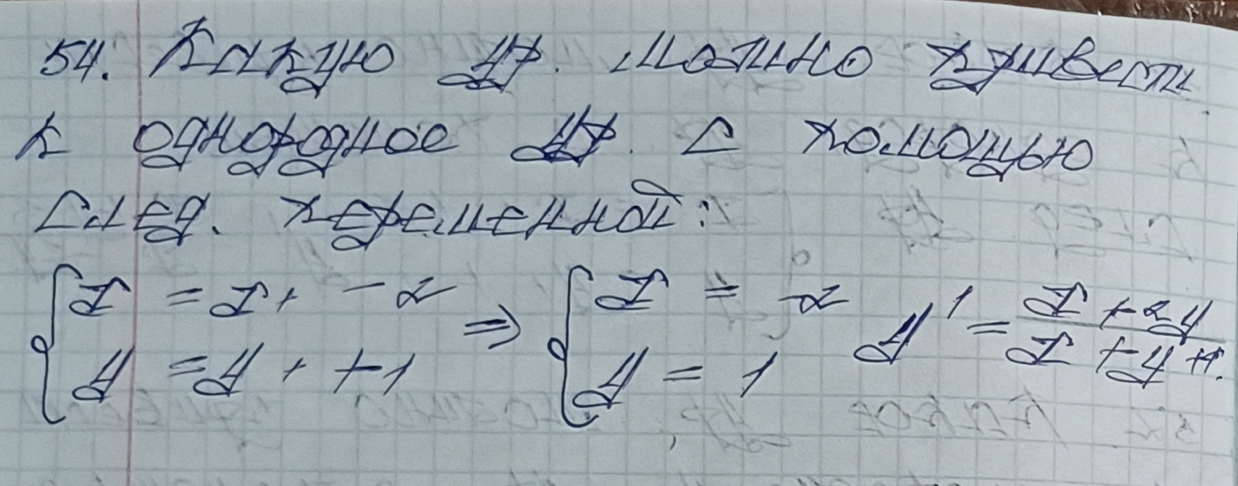 54. Какую ур. можно привести
к однородное ур. с помощью
след. переменной:
{ x = x₁ - 2 ⇒ { x = -2 y' = (x + 2y)/(x + y + 1).
{ y = y₁ + 1 { y = 1